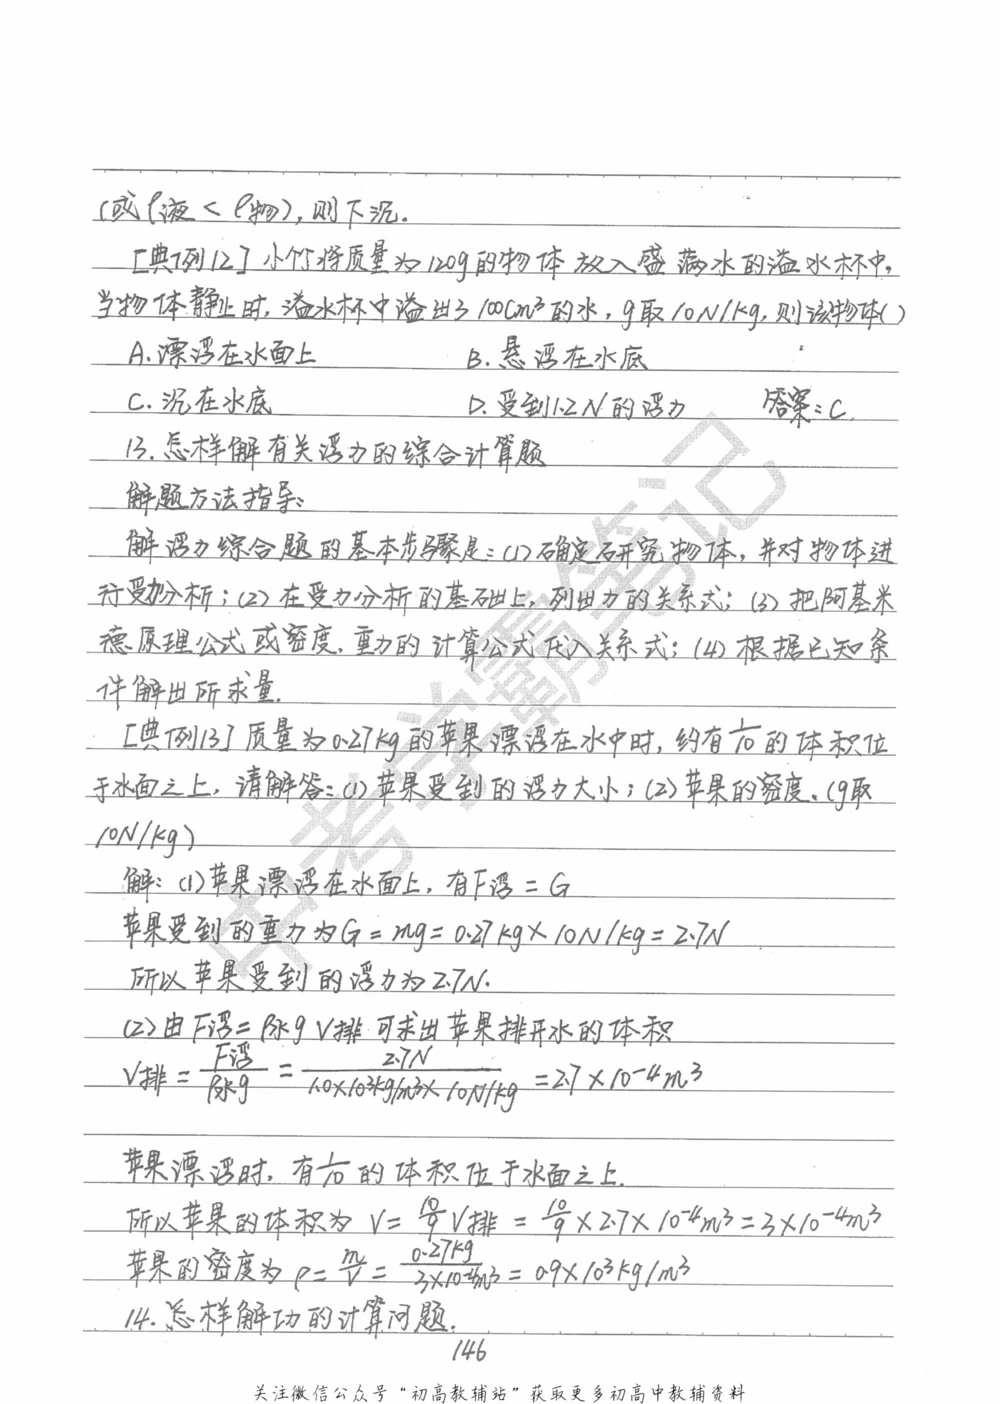 (或ρ液<ρ物),则下沉.
[典例12]小竹将质量为120g的物体放入盛满水的溢水杯中,
当物体静止时,溢水杯中溢出了100Cm³的水,g取10N/kg,则该物体()
A.漂浮在水面上 B.悬浮在水底
C.沉在水底 D.受到1.2N的浮力 答案:C.
13.怎样解有关浮力的综合计算题
解题方法指导:
解浮力综合题的基本步骤是:(1)确定研究物体,并对物体进
行受力分析;(2)在受力分析的基础上,列出力的关系式;(3)把阿基米
德原理公式或密度.重力的计算公式代入关系式;(4)根据已知条
件解出所求量.
[典例13]质量为0.27kg的苹果漂浮在水中时,约有1/10的体积位
于水面之上,请解答:(1)苹果受到的浮力大小;(2)苹果的密度.(g取
10N/kg)
解:(1)苹果漂浮在水面上,有F浮=G
苹果受到的重力为G=mg=0.27kg×10N/kg=2.7N
所以苹果受到的浮力为2.7N.
(2)由F浮=ρ水gV排可求出苹果排开水的体积
V排=F浮/ρ水g=2.7N/1.0×10³kg/m³×10N/kg=2.7×10⁻⁴m³
苹果漂浮时,有1/10的体积位于水面之上.
所以苹果的体积为V=10/9V排=10/9×2.7×10⁻⁴m³=3×10⁻⁴m³
苹果的密度为ρ=m/V=0.27kg/3×10⁻⁴m³=0.9×10³kg/m³
14.怎样解功的计算问题.
146
关注微信公众号“初高教辅站”获取更多初高中教辅资料
中考学霸笔记